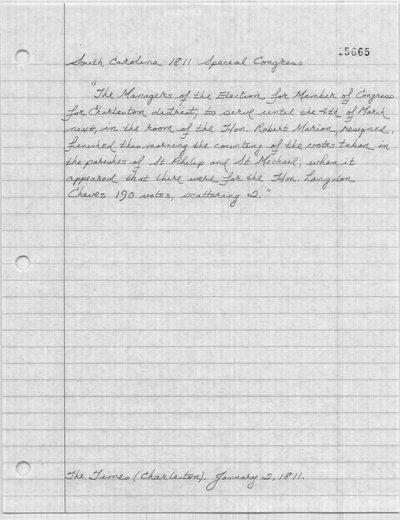 15665
South Carolina 1811 Special Congress
"The Managers of the Election for Member of Congress
for Charleston district, to serve until the 4th of March
next, in the room of the Hon. Robert Marion resigned,
finished this morning the counting of the votes taken in
the parishes of St Philip and St Michael; when it
appeared that there were for the Hon. Langdon
Cheves 190 votes, scattering 2."
The Times (Charleston). January 2, 1811.